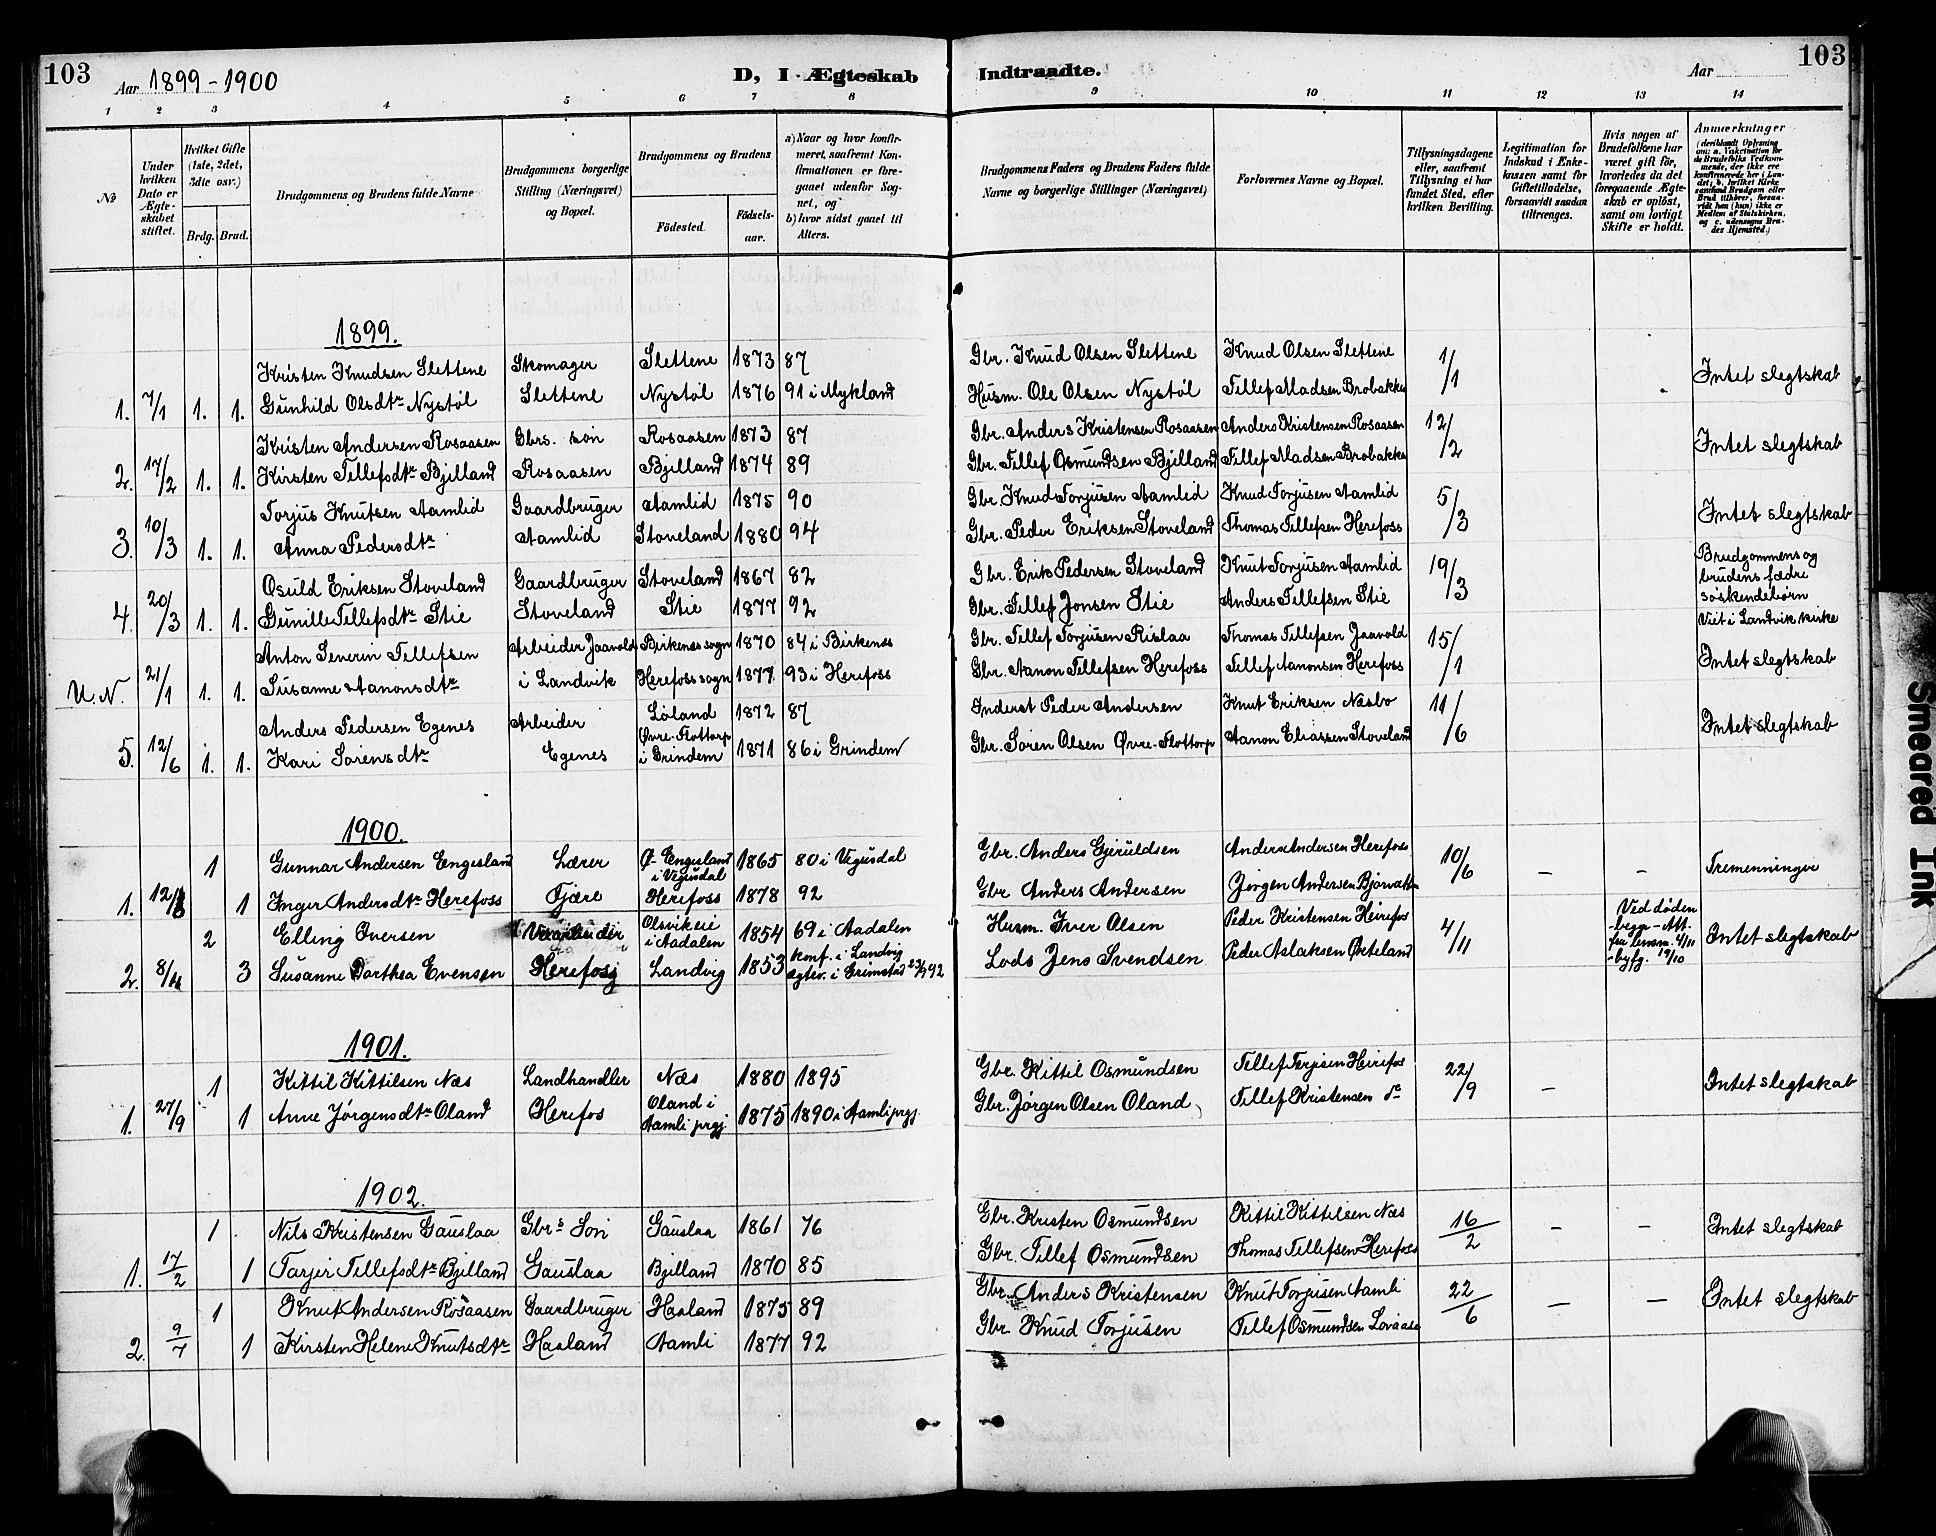 103
Aar 1899-1900
D, I Ægteskab
Indtraadte.
Aar
103
1 2 3 4 5 6 7 8
9 10 11 12 13 14
No
Under hvilken Dato er Ægteskabet stiftet.
Hvilket Gifte (1ste, 2det, 3die osv.)
Brdg. Brud.
Brudgommens og Brudens fulde Navne
Brudgommens borgerlige Stilling (Næringsvei) og Bopæl.
Brudgommens og Brudens
Födested. Födselsaar.
a) Naar og hvor konfirmeret, saafremt Konfirmationen er foregaaet udenfor Sognet, og
b) hvor sidst gaaet til Alters.
Brudgommens Faders og Brudens Faders fulde Navne og borgerlige Stillinger (Næringsvei)
Forlovernes Navne og Bopæl.
Tillysningsdagene eller, saafremt Tillysning ei har fundet Sted, efter hvilken Bevilling.
Legitimation for Indskud i Enkekassen samt for Giftetilladelse, forsaavidt saadan tiltrænges.
Hvis nogen af Brudefolkene har været gift för, hvorledes da det foregaaende Ægteskab er oplöst, samt om lovligt Skifte er holdt.
Anmærkninger (deriblandt Oplysning om: a. Vakcination for de Brudefolks Vedkommende, der ikke ere konfirmerede her i Landet, b. hvilket Kirkesamfund Brudgom eller Brud tilhörer, forsaavidt han (hun) ikke er Medlem af Statskirken, og c. udensogns Brudes Hjemsted.)
1899.
Kristen Knudsen Slettene Skomager Slettene 1873 87 Gbr. Knud Olsen Slettene Knud Olsen Slettene 1/1 Intet slegtskab
1. 7/1 1. 1. Gunhild Olsdtr Nystøl Slettene Nystøl 1876 91 i Mykland Husm. Ole Olsen Nystøl Tillef Madsen Brobakke
Kristen Andersen Rosaasen Gbrs. søn Rosaasen 1873 87 Gbr. Anders Kristensen Rosaasen Anders Kristensen Rosaasen 12/2 Intet slegtskab
2. 17/2 1. 1. Kirsten Tillefsdtr Bjelland Rosaasen Bjelland 1874 89 Gbr. Tillef Osmundsen Bjelland Tillef Madsen Brobakke
Torjus Knutsen Aamlid Gaardbruger Aamlid 1875 90 Gbr. Knud Torjusen Aamlid Knud Torjusen Aamlid 5/3 Intet slegtskab
3. 10/3 1. 1. Anna Pedersdtr Aamlid Stoveland 1880 94 Gbr. Peder Eriksen Stoveland Thomas Tillefsen Herefoss
Osuld Eriksen Stoveland Gaardbruger Stoveland 1867 82 Gbr. Erik Pedersen Stoveland Knut Torjusen Aamlid 19/3 Brudgommens og brudens fædre søskendebørn
4. 20/3 1. 1. Gunille Tillefsdtr Stie Stoveland Stie 1877 92 Gbr. Tillef Jonsen Stie Anders Tillefsen Stie
Anton Severin Tillefsen Arbeider Jaavold Birkenes sogn 1870 84 i Birkenes Gbr. Tillef Torjusen Rislaa Thomas Tillefsen Jaavold 15/1 Viet i Landvik kirke
U.N. 21/1 1. 1. Susanne Aanonsdtr i Landvik Herefoss sogn 1877 93 i Herefoss Gbr. Aanon Tillefsen Herefoss Tillef Aanonsen Herefoss Intet slegtskab
Anders Pedersen Egenes Arbeider Løland 1872 87 Inderst Peder Andersen Knut Eriksen Næsbo 11/6 Intet slegtskab
5. 12/6 1. 1. Kari Sørensdtr Egenes Øvre-Flottorp i Grindem 1871 86 i Grindem Gbr. Søren Olsen Øvre-Flottorp Aanon Eliassen Stoveland
1900.
1 Gunnar Andersen Engesland Lærer Ø-Engesland i Vegusdal 1865 80 i Vegusdal Gbr. Anders Gjeruldsen Anders Andersen Herefoss 10/6 - - Tremenninger
1. 12/6 1 Inger Andersdtr Herefoss Fjære Herefoss 1878 92 Gbr Anders Andersen Jørgen Andersen
2 Elling Iversen Olsvikeie i Aadalen 1854 69 i Aadalen Husm. Iver Olsen Peder Kristensen Heirefos 4/11 Ved døden Intet slegtskab
2. 8/11 3 Susanne Dorthea Evensen Herefos Landvig 1853 konf. i Landvig Lods Jens Svendsen Peder Aslaksen Ørteland
1901.
1 Kittil Kittilsen Næs Landhandler Næs 1880 1895 Gbr. Kittil Osmundsen Tellef Terjesen Heirefos 22/9 - Intet slegtskab
1. 27/9 1 Anne Jørgensdtr Oland Herefos Oland i Aamli prgj. 1875 1890 i Aamli prgj. Gbr. Jørgen Olsen Oland Tellef Kristensen do
1902.
1 Nils Kristensen Gauslaa Gbrs Søn Gauslaa 1861 76 Gbr. Kristen Osmundsen Kittil Kittilsen Næs 16/2 - - Intet slegtskab
1. 17/2 1 Tarjer Tillefsdtr Bjelland Gauslaa Bjelland 1870 85 Gbr. Tellef Osmundsen Thomas Tellefsen Herefoss
1 Knut Andersen Rosaasen Gaardbruger Haaland 1875 89 Gbr. Anders Kristensen Knut Torjusen Aamli 22/6 - - Intet slegtskab
2. 9/7 1 Kirsten Helene Knutsdtr Haaland Aamli 1877 92 Gbr Knud Torjusen Tellef Osmundsen Lovaas
Smeared Ink